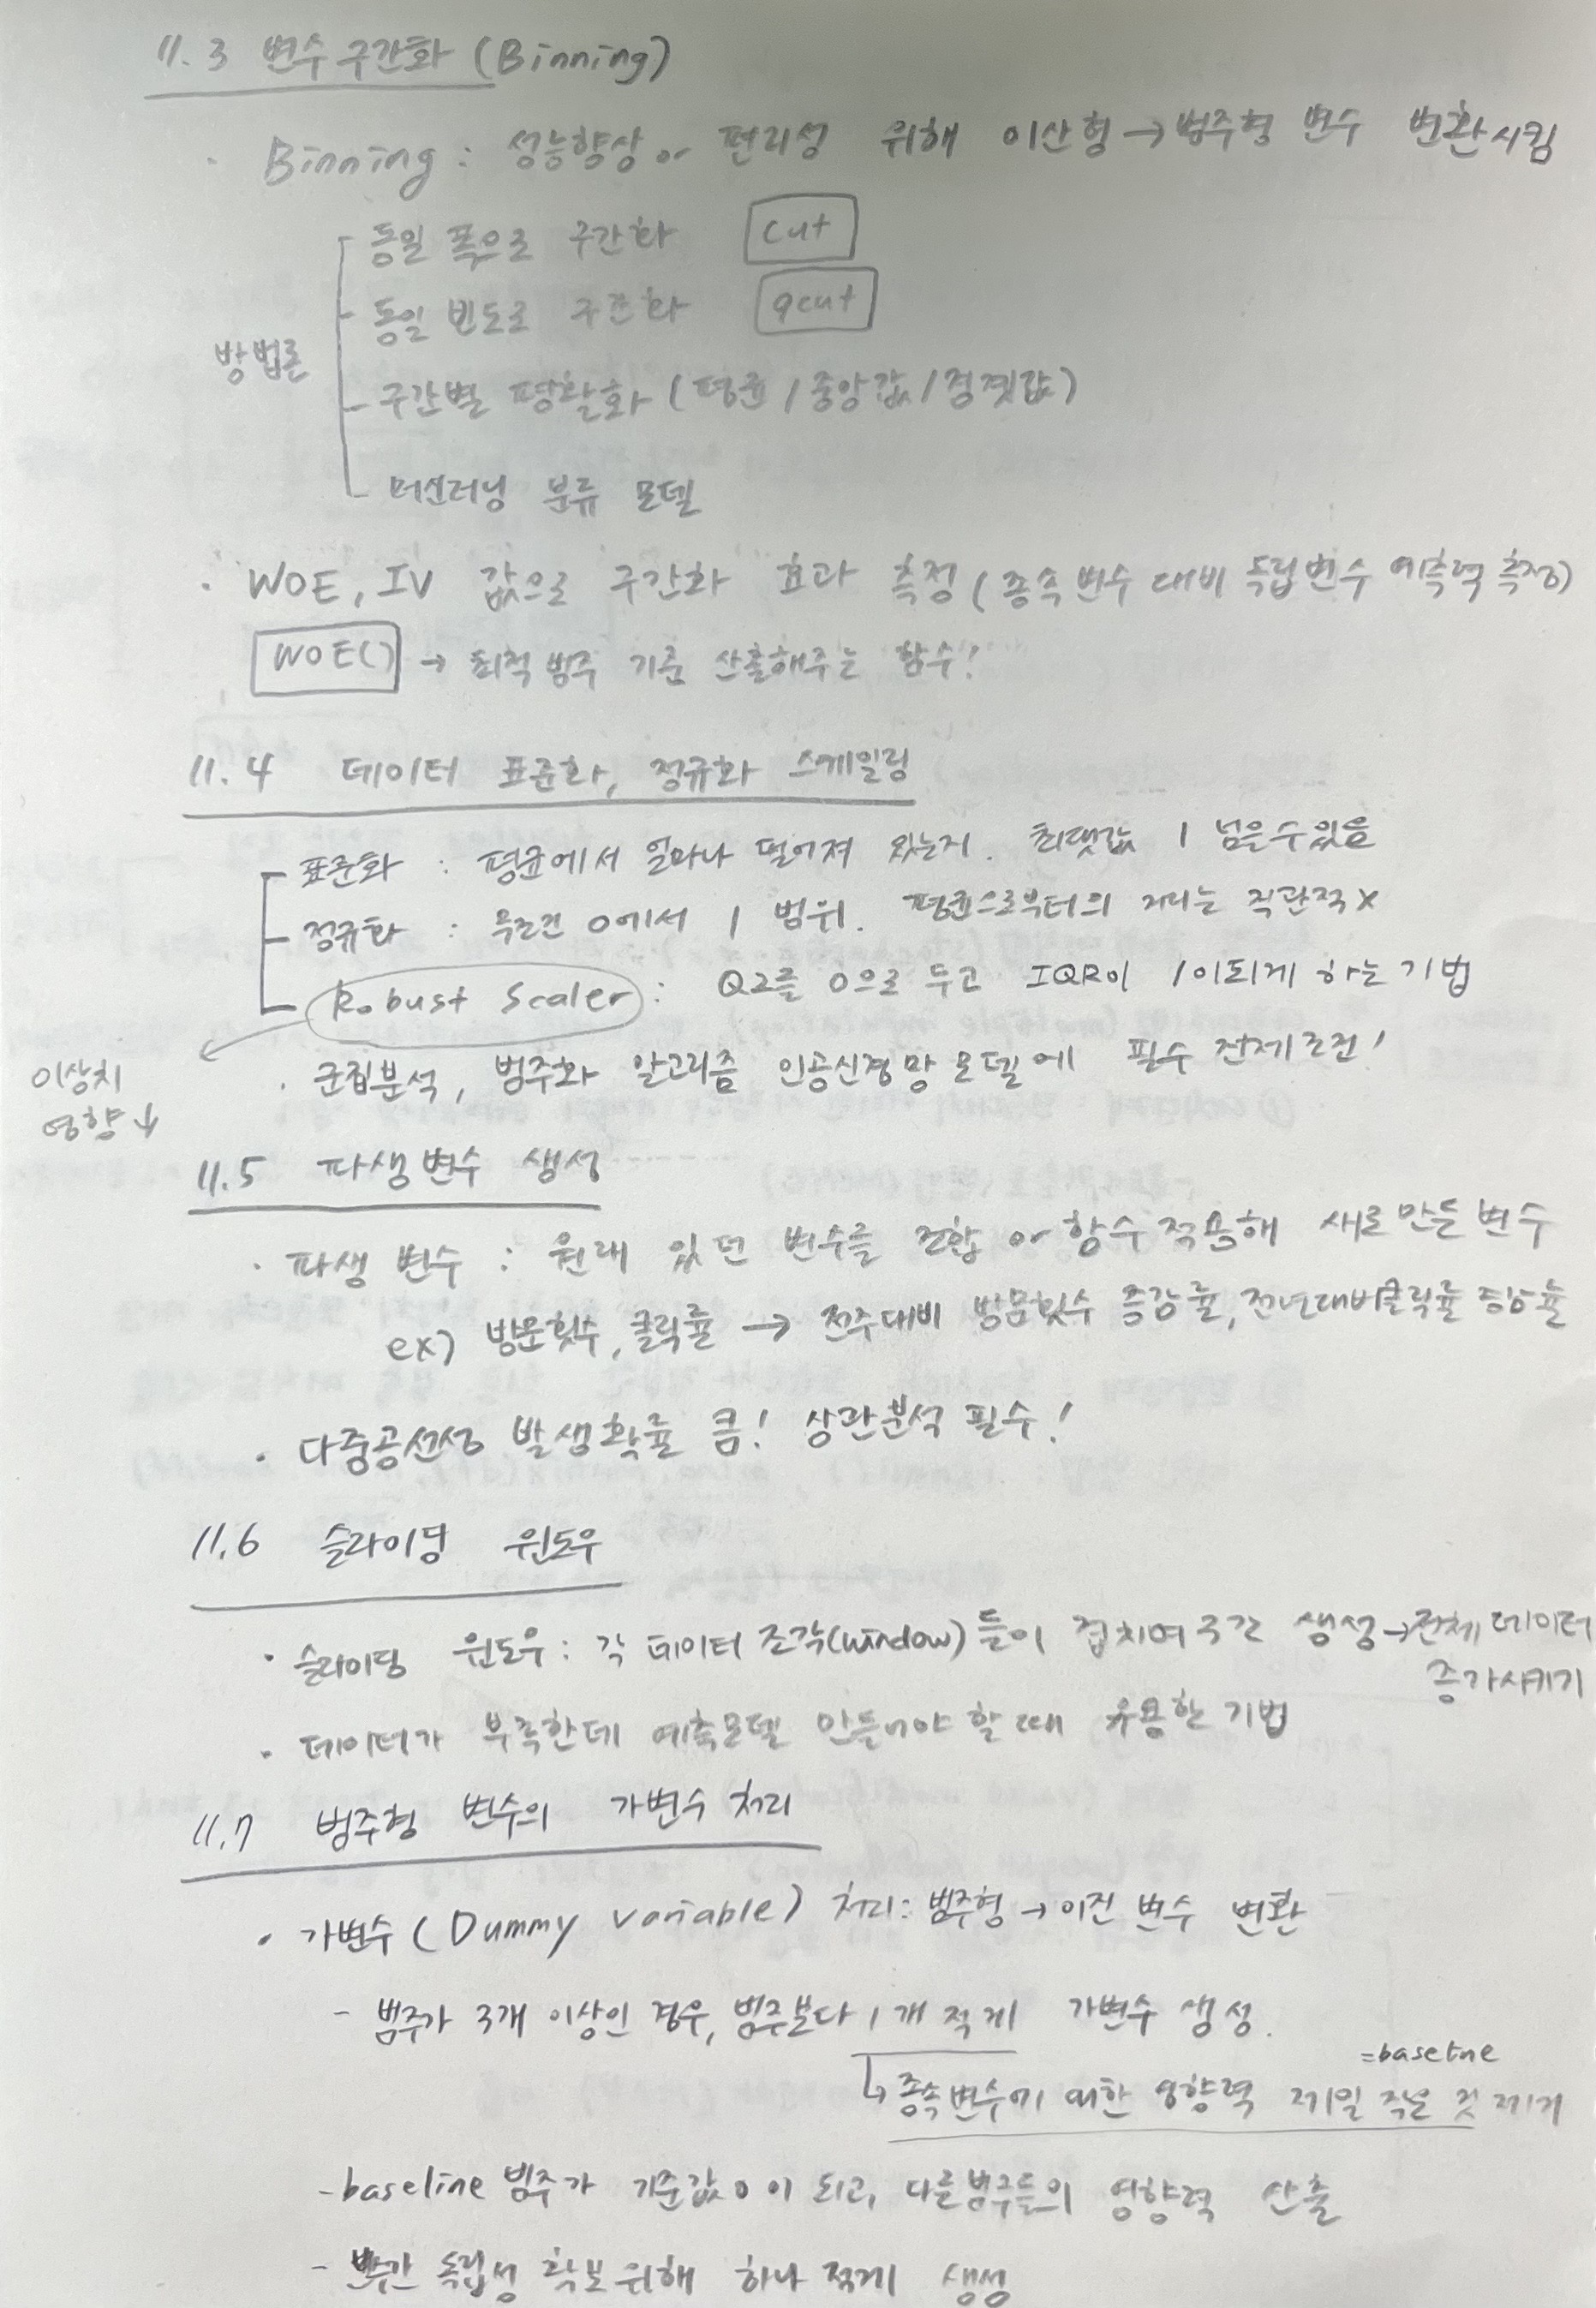 11.3 변수 구간화 (Binning)
· Binning : 성능향상 or 편리성 위해 이산형 → 범주형 변수 변환시킴
방법론
- 동일 폭으로 구간화 cut
- 동일 빈도로 구간화 qcut
- 구간별 평활화 (평균 / 중앙값 / 경곗값)
- 머신러닝 분류 모델
· WOE, IV 값으로 구간화 효과 측정 (종속변수 대비 독립변수 예측력 측정)
WOE() → 최적 범주 기준 산출해주는 함수!
11.4 데이터 표준화, 정규화 스케일링
- 표준화 : 평균에서 얼마나 떨어져 있는지. 최댓값 1 넘을수있음
- 정규화 : 무조건 0에서 1 범위. 평균으로부터의 거리는 직관적 X
- Robust Scaler : Q2를 0으로 두고 IQR이 1이되게 하는 기법
이상치
영향 ↓
· 군집분석, 범주화 알고리즘 인공신경망 모델에 필수 전제조건!
11.5 파생변수 생성
· 파생 변수 : 원래 있던 변수를 조합 or 함수 적용해 새로 만든 변수
ex) 방문횟수, 클릭률 → 전주대비 방문횟수 증감률, 전년대비클릭률 증감률
· 다중공선성 발생확률 큼! 상관분석 필수!
11.6 슬라이딩 윈도우
· 슬라이딩 윈도우 : 각 데이터 조각(window)들이 겹치며 구간 생성 → 전체 데이터
증가시키기
· 데이터가 부족한데 예측모델 만들어야 할 때 유용한 기법
11.7 범주형 변수의 가변수 처리
· 가변수 (Dummy variable) 처리 : 범주형 → 이진 변수 변환
- 범주가 3개 이상인 경우, 범주보다 1개 적게 가변수 생성.
=baseline
↳ 종속변수에 대한 영향력 제일 적은 것 제거
- baseline 범주가 기준값 0이 되고, 다른범주들의 영향력 산출
- 독립성 확보 위해 하나 적게 생성